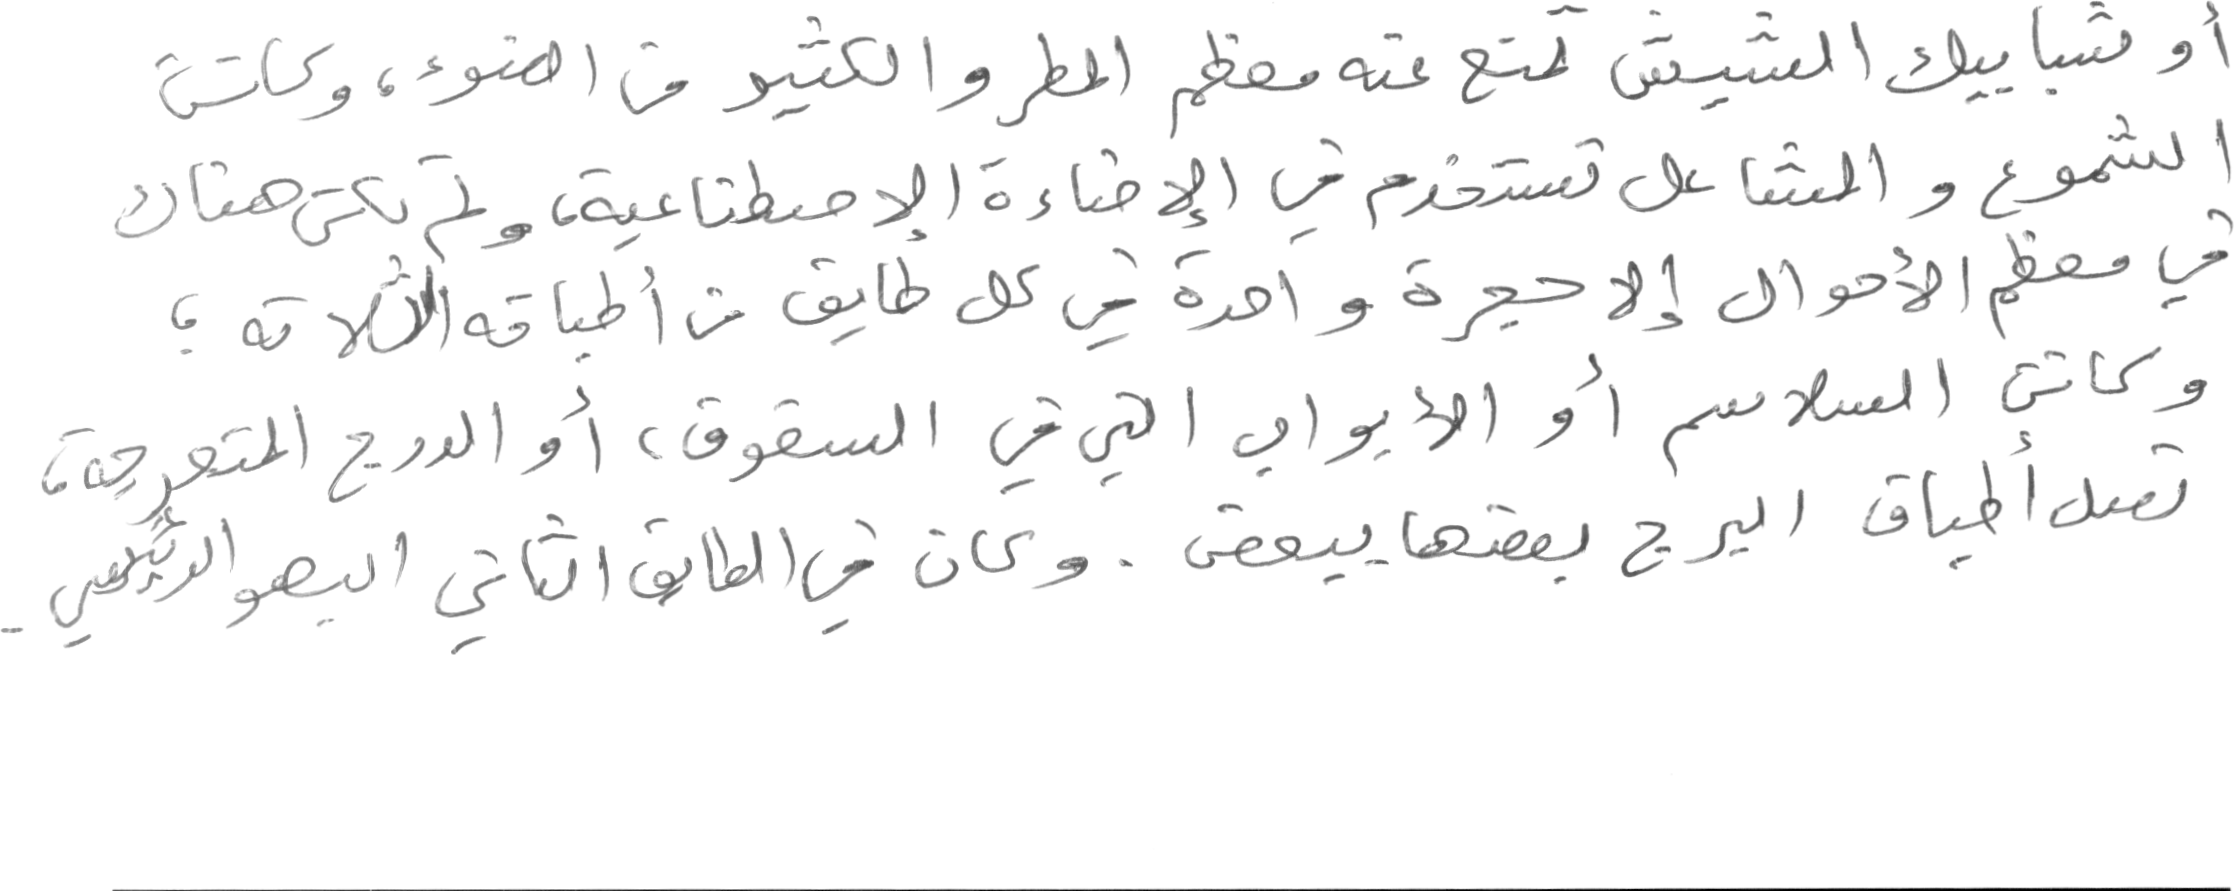 أو شبابيك الشيش تمنع عنه معظم المطر والكثير من الضوء، وكانت
الشموع والمشاعل تستخدم في الإضاءة الإصطناعية، ولم تكن هناك
في معظم الأحوال إلا حجرة واحدة في كل طابق من أطباقه الثلاثة؛
وكانت السلاسم أو الأبواب التي في السقوف، أو الدرج المتعرجة،
تصل أطباق البرج بعضها ببعض. وكان في الطابق الثاني البهو الرئيسي-